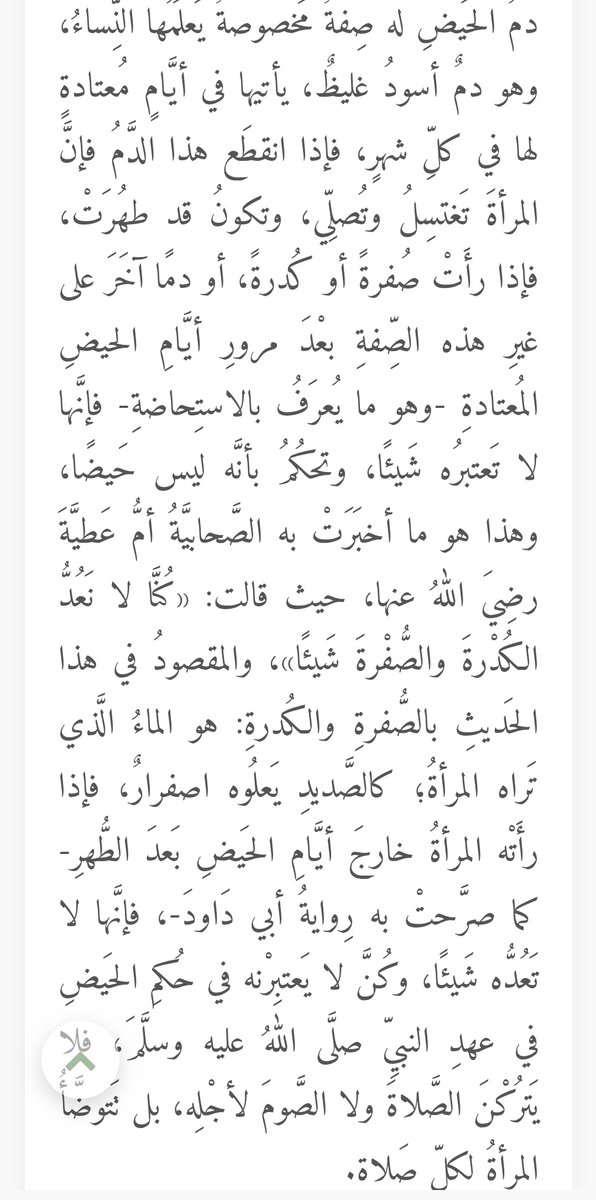 دمُ الحَيضِ له صِفةٌ مَخصوصةٌ يَعلَمُها النِّساءُ،
وهو دمٌ أسودُ غليظٌ، يأتيها في أيَّامٍ مُعتادةٍ
لها في كلِّ شهرٍ، فإذا انقطَع هذا الدَّمُ فإنَّ
المرأةَ تَغتسِلُ وتُصلِّي، وتكونُ قد طهُرَتْ،
فإذا رأَتْ صُفرةً أو كُدرةً، أو دمًا آخَرَ على
غيرِ هذه الصِّفةِ بعْدَ مرورِ أيَّامِ الحيضِ
المُعتادةِ -وهو ما يُعرَفُ بالاستِحاضةِ- فإنَّها
لا تَعتبرُه شَيئًا، وتحكُمُ بأنَّه ليس حَيضًا،
وهذا هو ما أخبَرَتْ به الصَّحابيَّةُ أمُّ عَطيَّةَ
رضِيَ اللهُ عنها، حيث قالت: «كُنَّا لا نَعُدُّ
الكُدْرةَ والصُّفْرةَ شَيئًا»، والمقصودُ في هذا
الحَديثِ بالصُّفرةِ والكُدرةِ: هو الماءُ الَّذي
تَراه المرأةُ؛ كالصَّديدِ يَعلُوه اصفرارٌ، فإذا
رأَتْه المرأةُ خارجَ أيَّامِ الحَيضِ بَعدَ الطُّهرِ-
كما صرَّحتْ به رِوايةُ أبي دَاودَ-، فإنَّها لا
تَعُدُّه شَيئًا، وكُنَّ لا يَعتبِرْنه في حُكمِ الحَيضِ
في عهدِ النبيِّ صلَّى اللهُ عليه وسلَّمَ، فلا
يَترُكْنَ الصَّلاةَ ولا الصَّومَ لأجْلِه، بل تَتوضَّأُ
المرأةُ لكلِّ صَلاة.